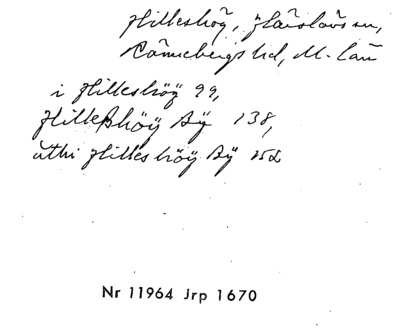 Hilleshög, Härslövs sn,
Rönnebergs hd, M. län
i Hilleshöÿ 99,
Hilleßhöÿ Bÿ 138,
uthi Hilleshöÿ Bÿ 152
Nr 11964 Jrp 1670